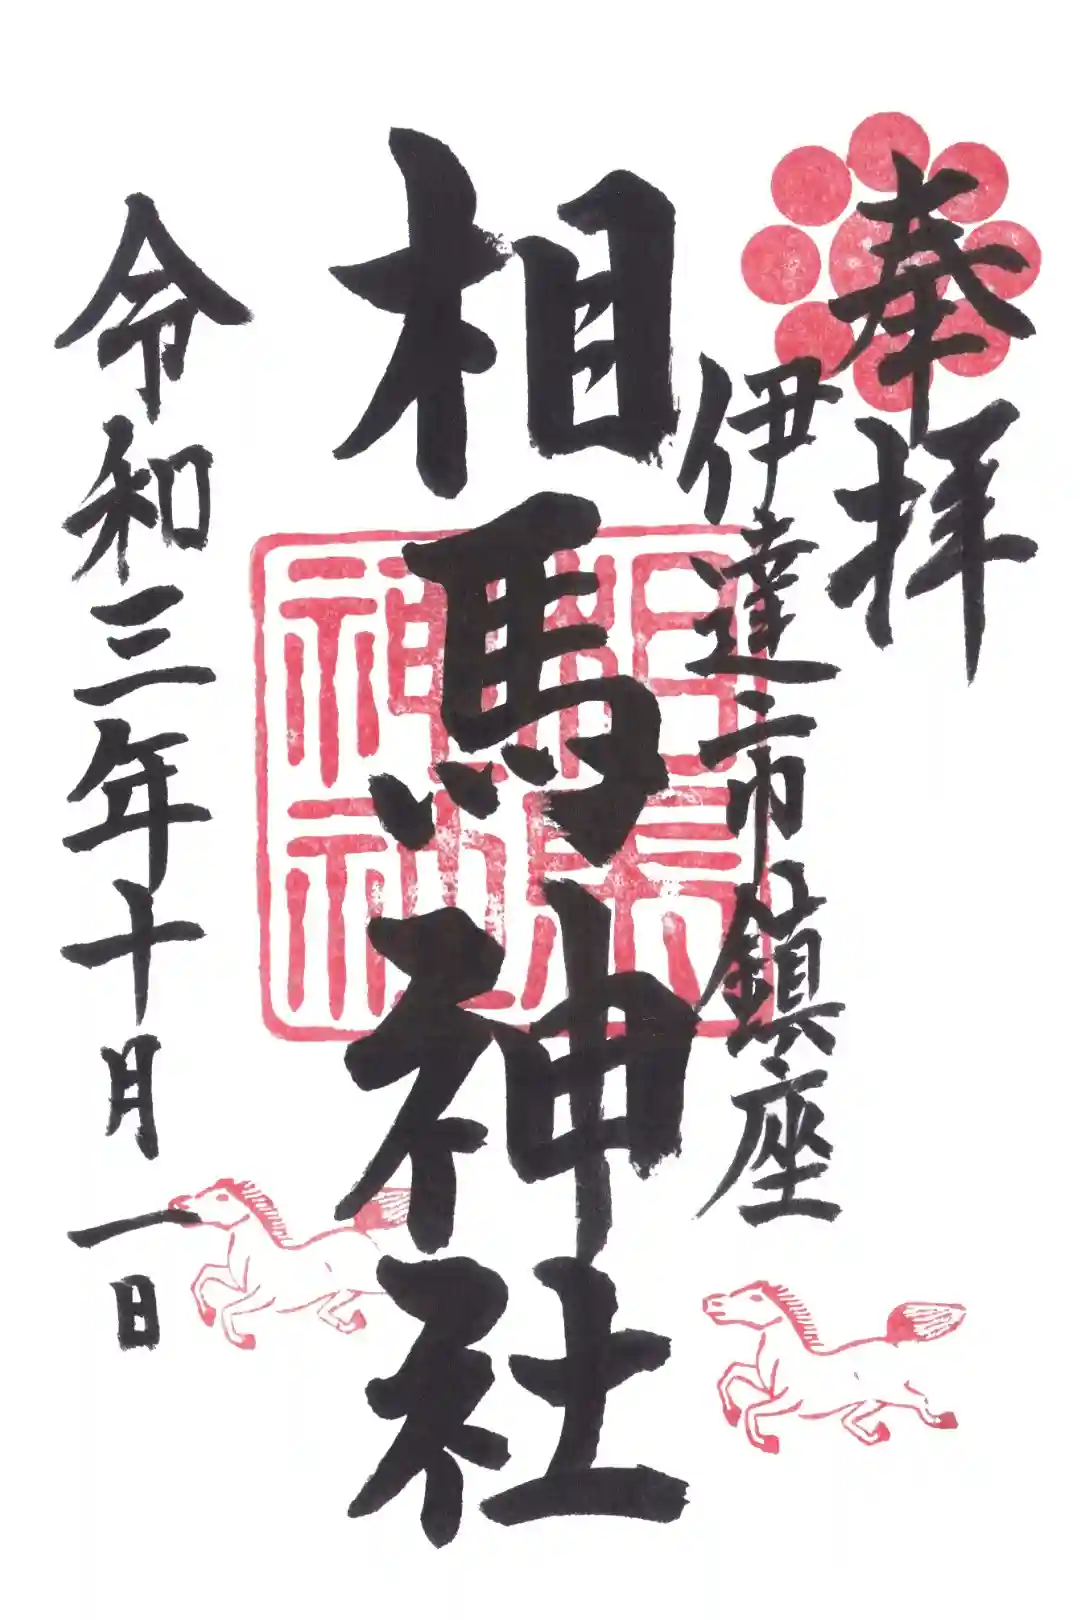 奉拝
伊達市鎮座
相馬神社
令和三年十月一日
相馬神社